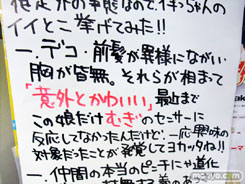 想定外の事態なので、イキっちゃんの
イイとこ挙げてみた!!
一.デコ・前髪が異様にながい
胸が皆無。それらが相まって
「意外とかわいい」最近まで
この娘だけむぎのセーサーに
反応しなかったんだけど、一応興味の
対象だったことが発覚してヨカッタね!!
一.仲間の本当のピンチにや進化